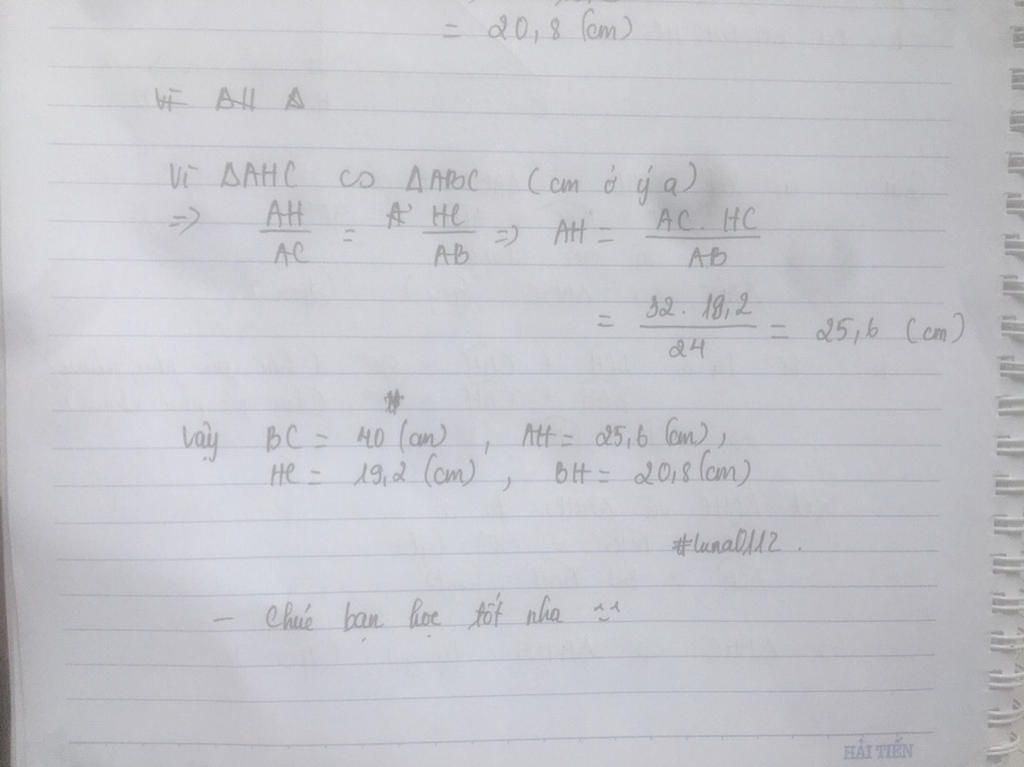 = 20,8 (cm)
Vì AH Δ
Vì ΔAHC ∽ ΔABC (cm ở ý a)
=> AH/AC = A HC/AB => AH = AC. HC/AB
= 32. 19,2/24 = 25,6 (cm)
Vậy BC = 40 (cm) , AH = 25,6 (cm) ,
HC = 19,2 (cm) , BH = 20,8 (cm)
#luna0112 .
- Chúc bạn học tốt nha ^^
HẢI TIẾN